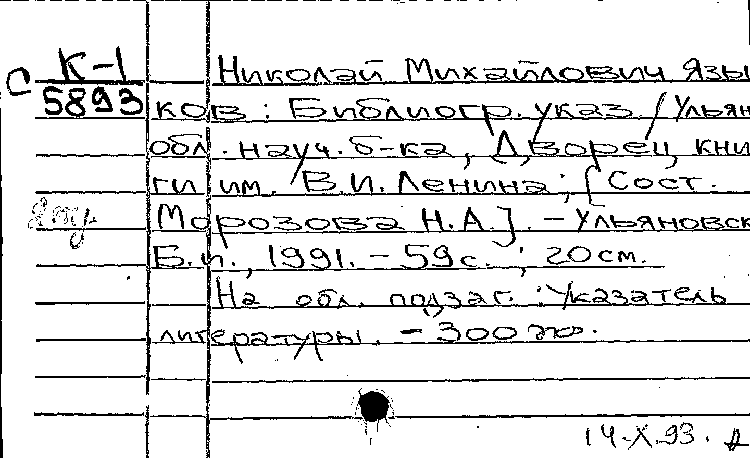 С К-1
5893
Николай Михайлович Язы
ков : Библиогр. указ. / Ульян.
обл. науч. б-ка, Дворец кни
ги им. В.И. Ленина ; [Сост.
Морозова Н.А.]. - Ульяновск
Б.и., 1991. - 59 с. ; 20 см.
На обл. подзаг. : Указатель
литературы. - 300 экз.
14.X.93.